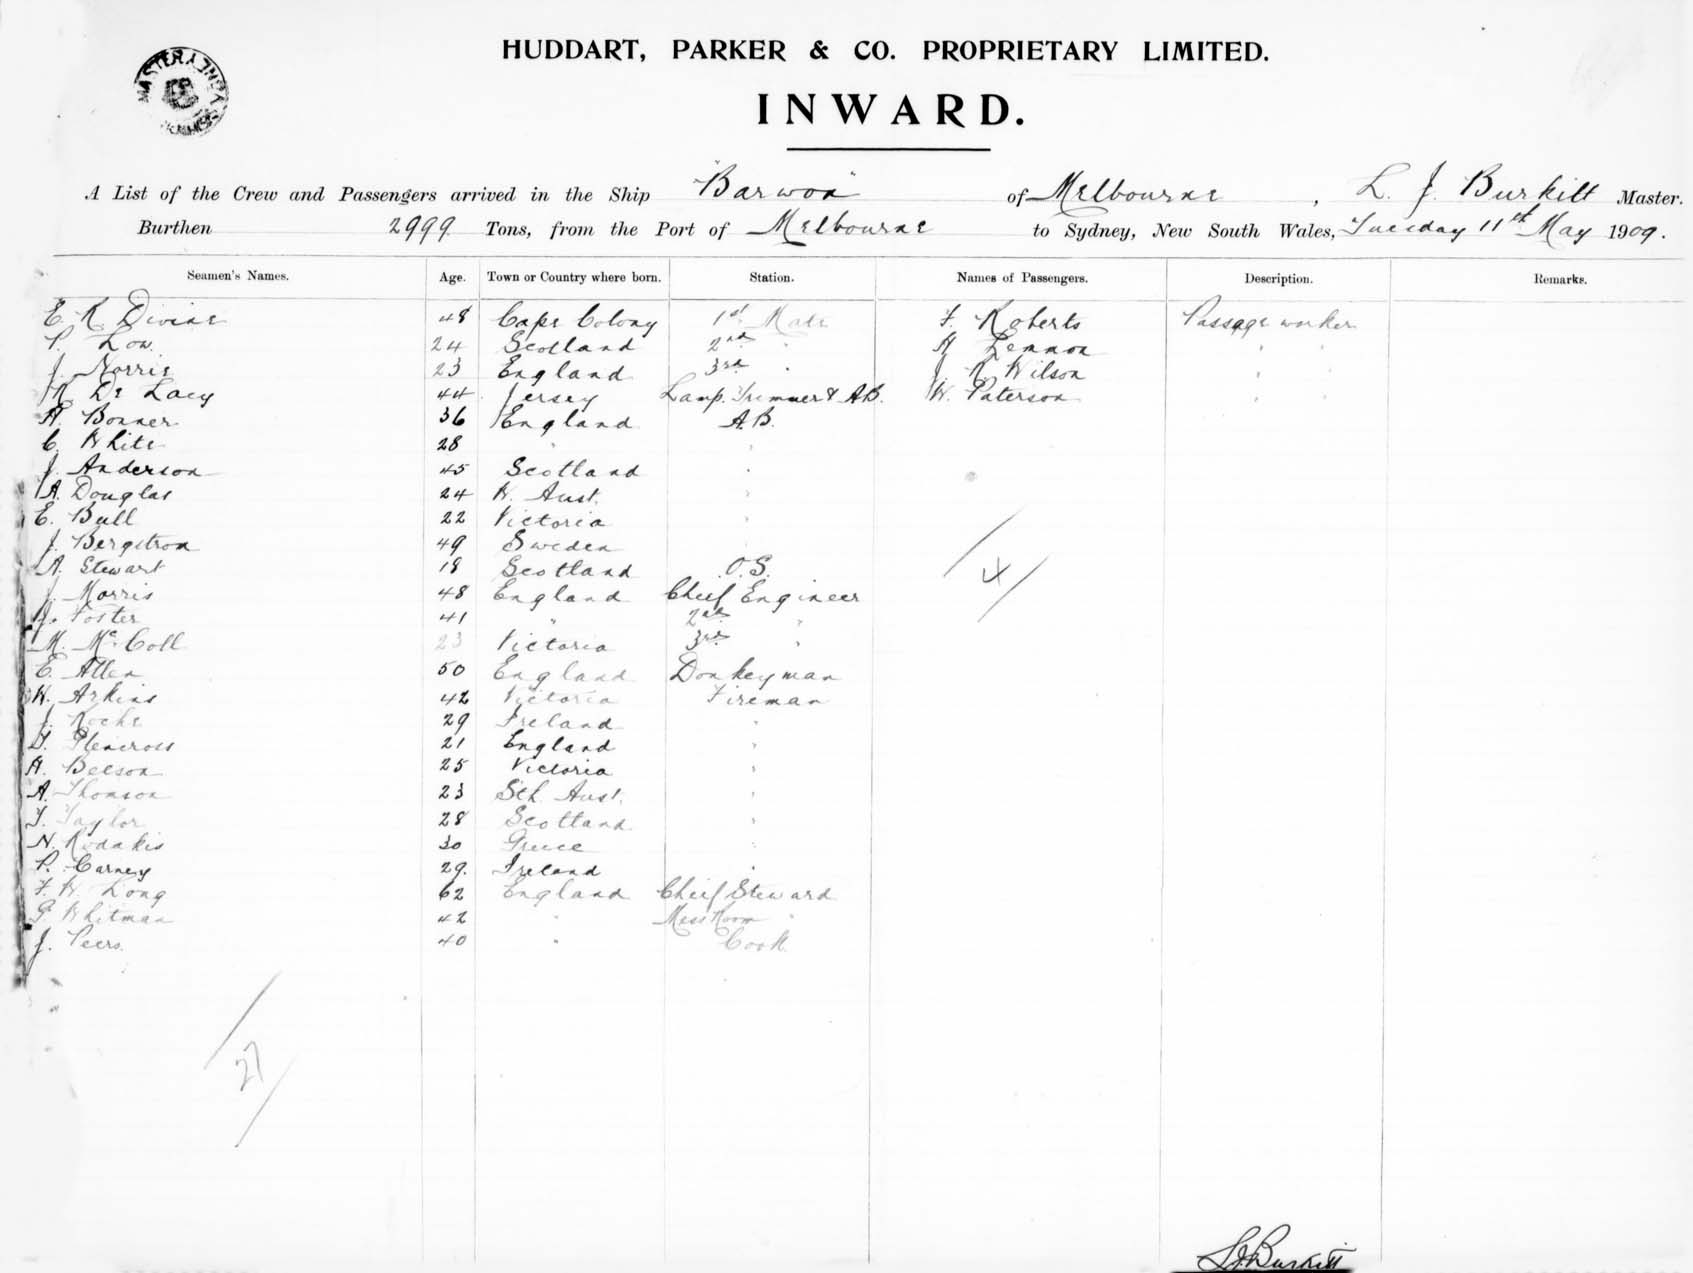 HUDDART, PARKER & CO. PROPRIETARY LIMITED.
INWARD.
A List of the Crew and Passengers arrived in the Ship "Barwon" of Melbourne, L. J. Burkitt Master.
Burthen 2999 Tons, from the Port of Melbourne to Sydney, New South Wales, Tuesday 11th May 1909.
Seamen's Names. Age. Town or Country where born. Station. Names of Passengers. Description. Remarks.
E. R. Divine 48 Cape Colony 1st Mate F. Roberts Passage worker
P. Low. 24 Scotland 2nd " H. Lemmon " "
J. Norris 23 England 3rd " J. R. Wilson " "
R. De Lacy 44 Jersey Lamp Trimmer & A.B. W. Paterson " "
A. Bonner 36 England A.B.
C. White 28 " "
J. Anderson 45 Scotland "
A. Douglas 24 W. Aust. "
E. Bull 22 Victoria "
J. Bergstrom 49 Sweden
A. Stewart 18 Scotland O.S.
J. Morris 48 England Chief Engineer
J. Foster 41 " 2nd "
M. McColl 23 Victoria 3rd "
E. Allen 50 England Donkeyman
W. Arkins 42 Victoria Fireman
J. Roche 29 Ireland "
Glencross 21 England "
H. Beeson 25 Victoria "
A. Thomson 23 Sth. Aust. "
T. Taylor 28 Scotland "
N. Kodakis 30 Greece "
P. Carney 29. Ireland "
F. W. Long 62 England Chief Steward
G. Whitman 42 " Mess Room "
J. Peers. 40 " Cook
4
27
L. J. Burkitt